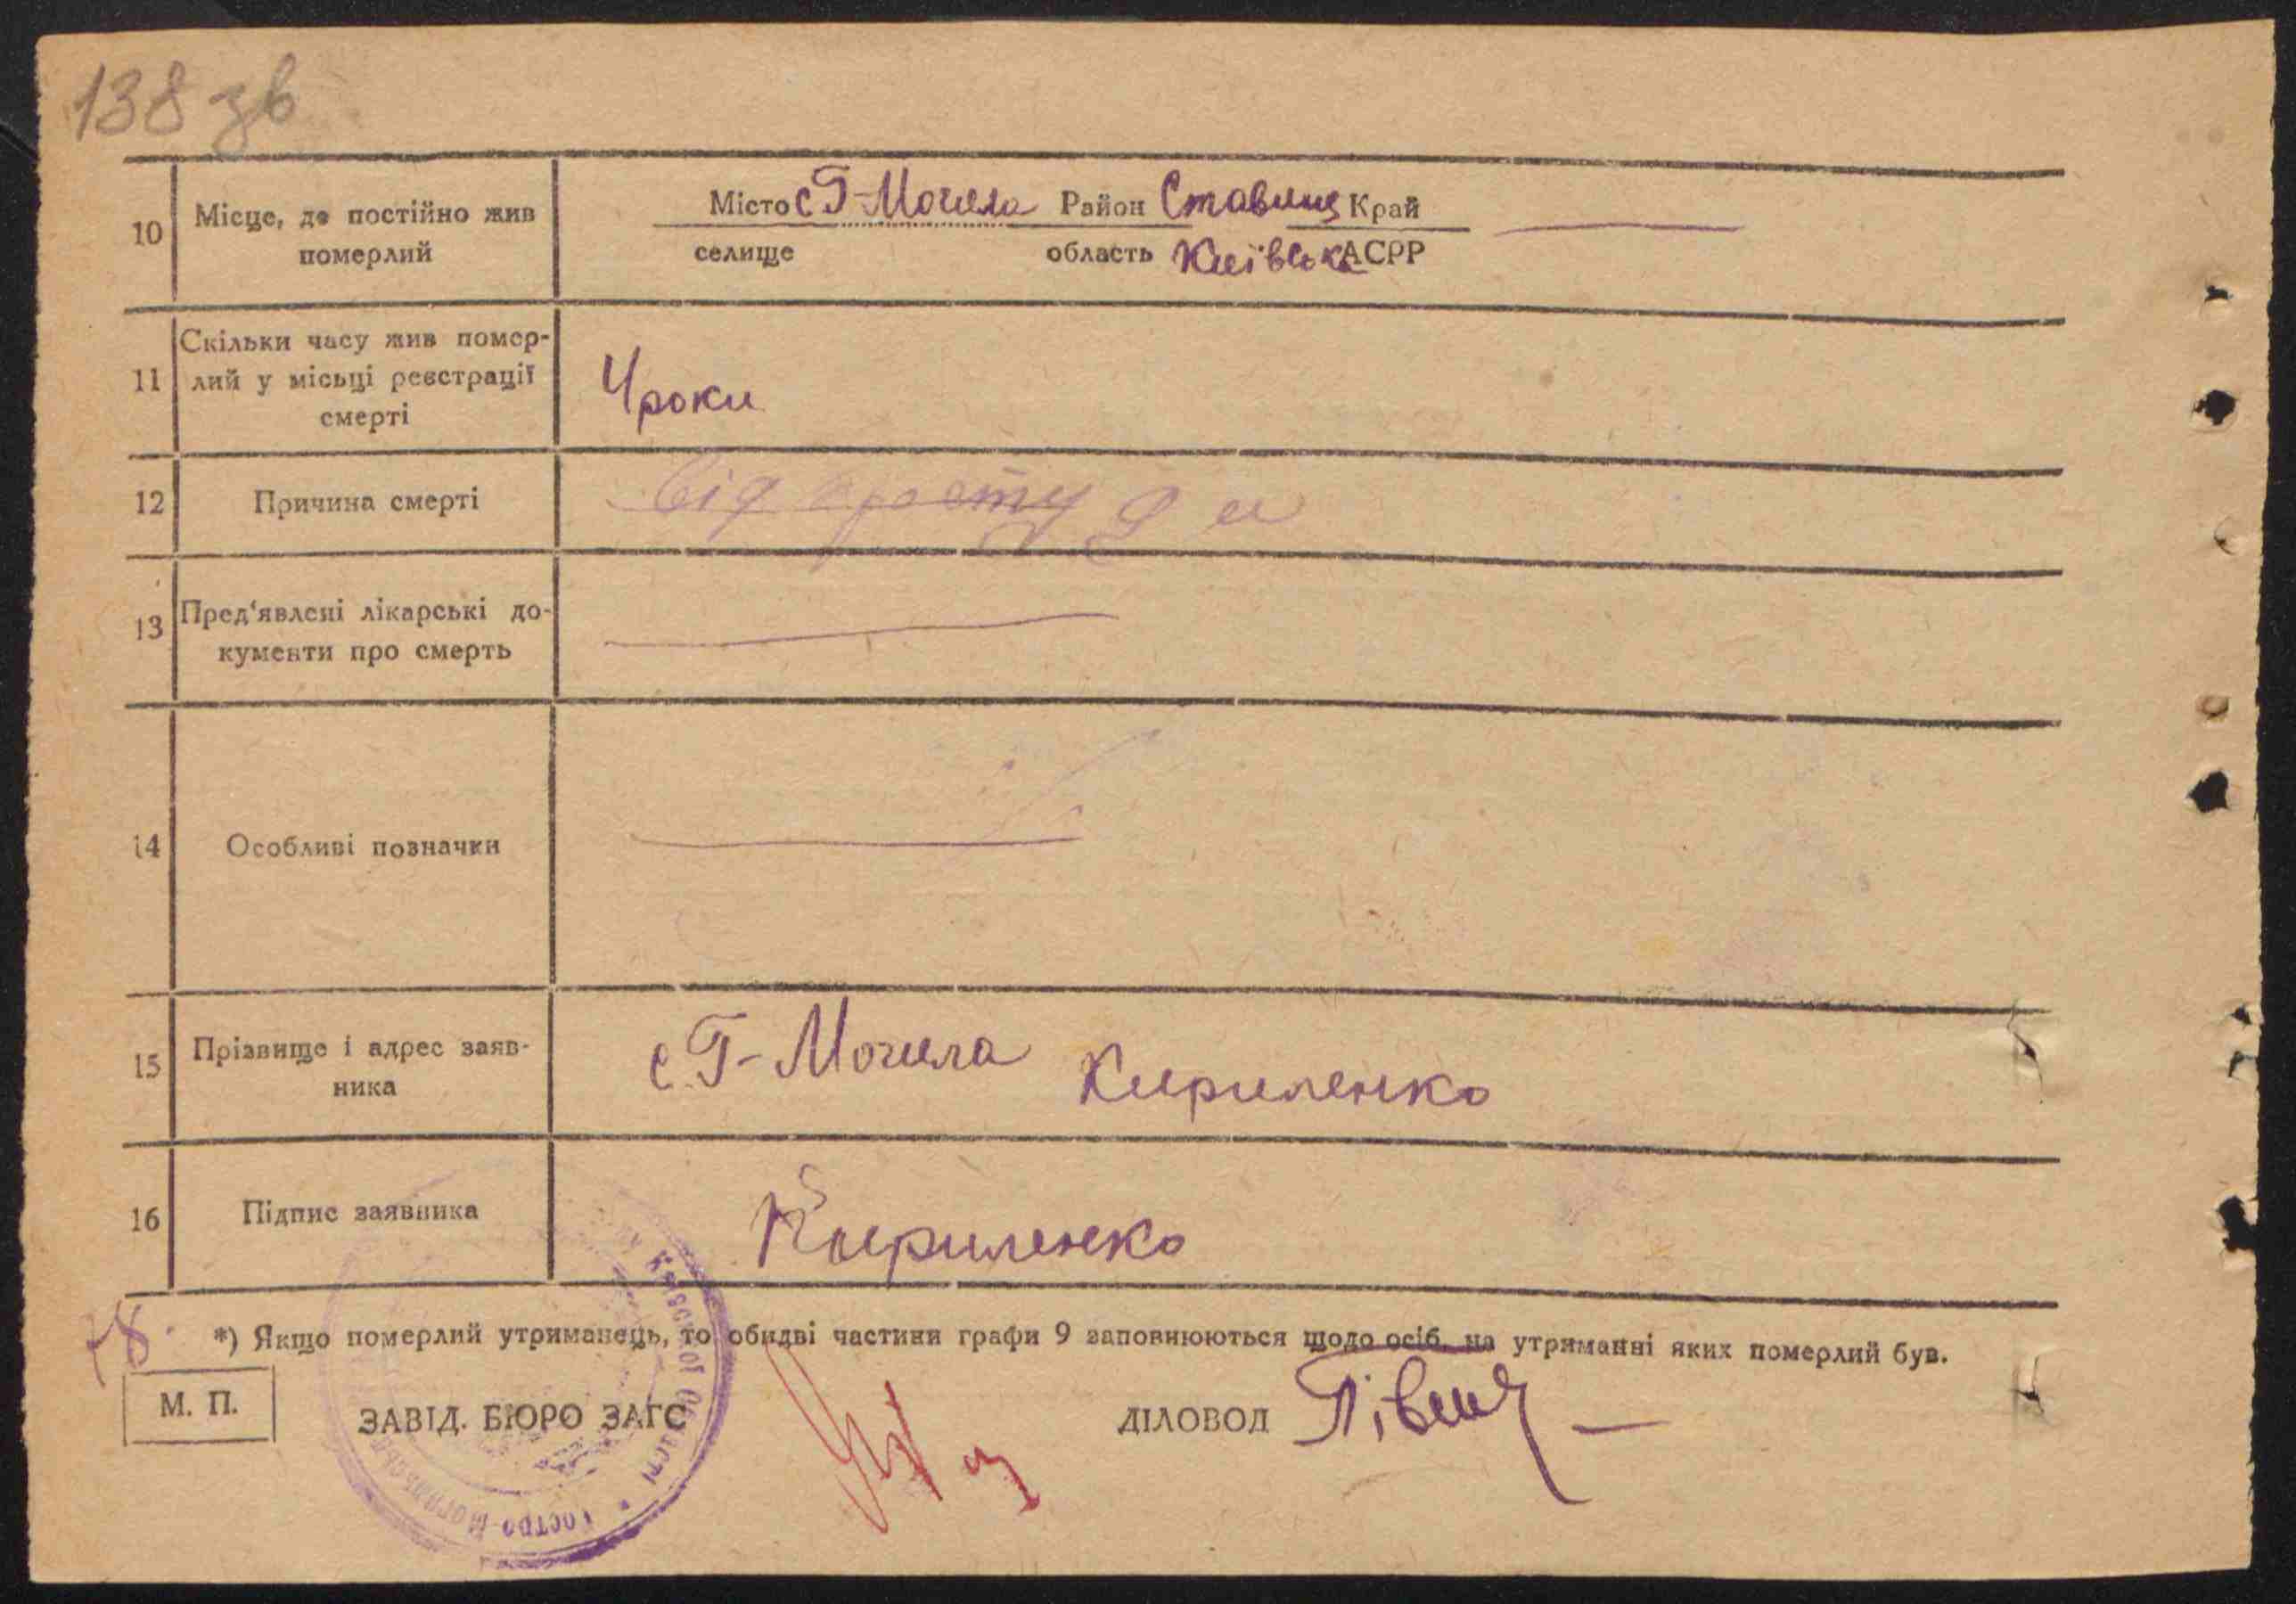 138 зв
10
Місце, де постійно жив
померлий
Місто с Г-Могила Район Ставищ Край
селище область Київська АСРР
11
Скільки часу жив помер-
лий у місьці реєстрації
смерті
4 роки
12
Причина смерті
від простуди
13
Пред'явлені лікарські до-
кументи про смерть
14
Особливі позначки
15
Прізвище і адрес заяв-
ника
с. Г-Могила Кириленко
16
Підпис заявника
Кириленко
*) Якщо померлий утриманець, то обидві частини графи 9 заповнюються щодо осіб, на утриманні яких померлий був.
М. П.
ЗАВІД. БЮРО ЗАГС
ДІЛОВОД
Київської Області * Гостро-Могильсь